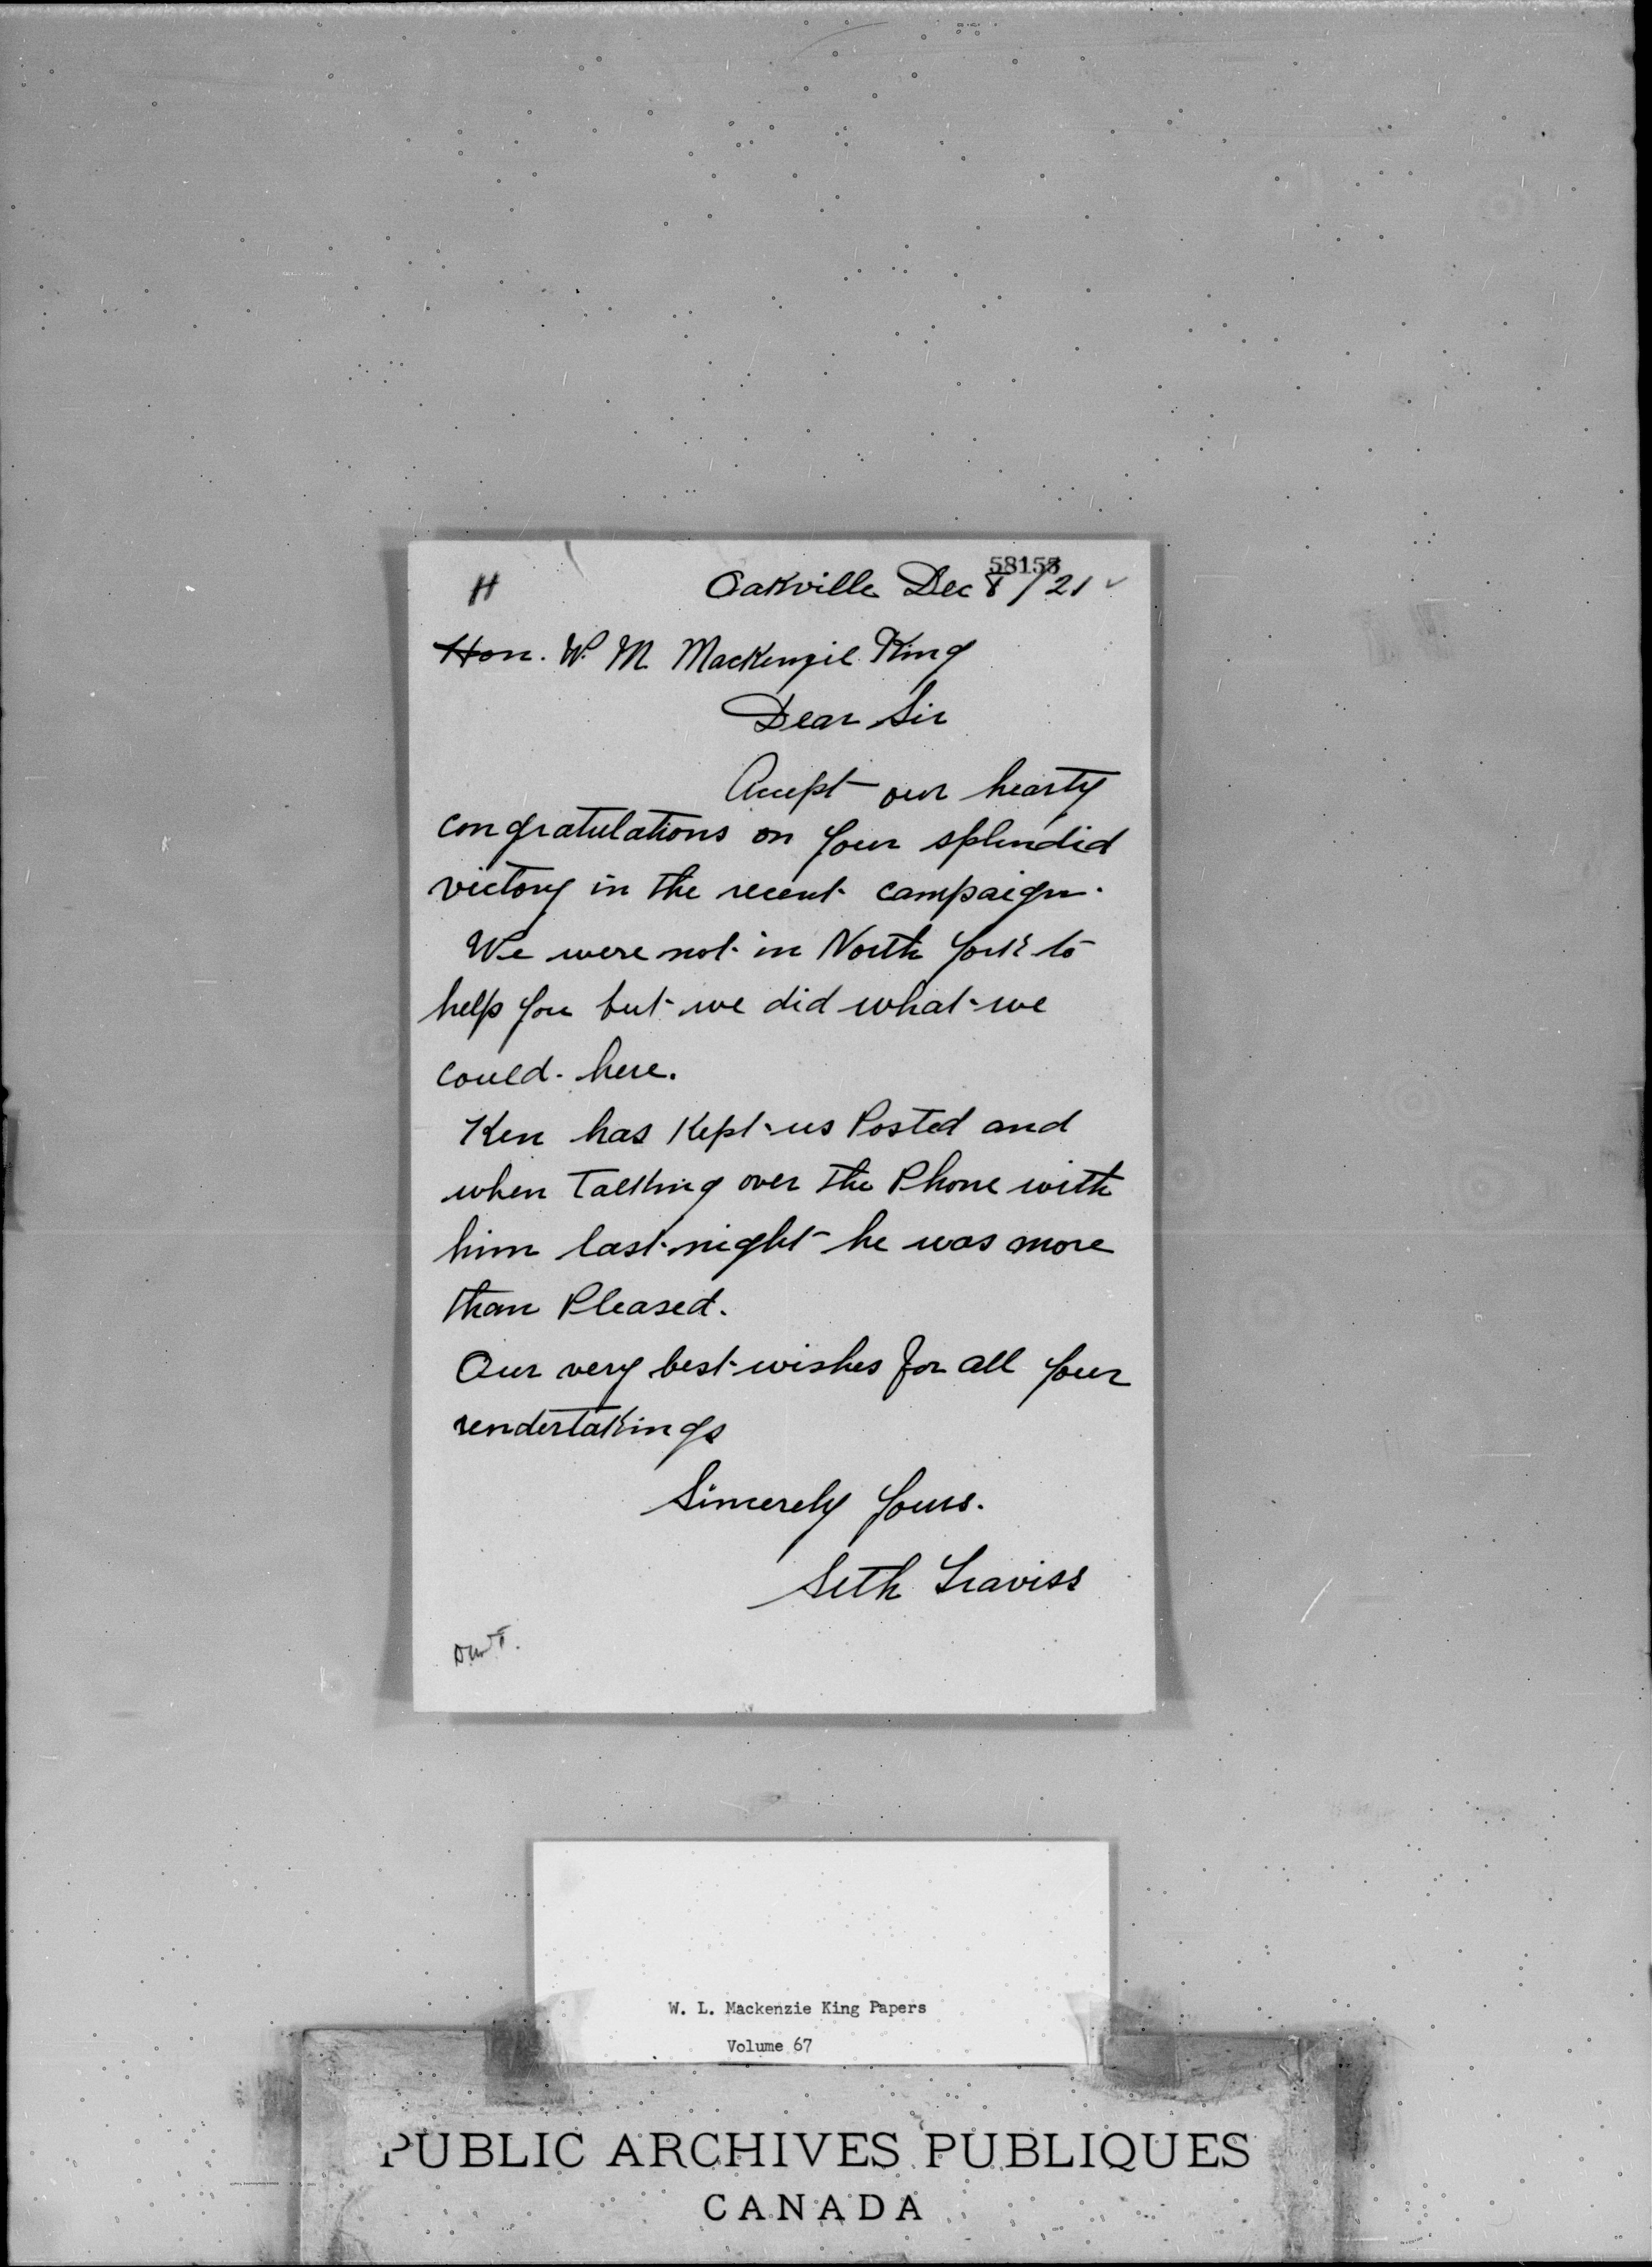 58153
H Oakville Dec 8/21
Hon. W. M Mackenzie King
Dear Sir
Accept our hearty
congratulations on your splendid
victory in the recent campaign.
We were not in North York to
help you but we did what we
could here.
Ken has Kept us Posted and
when Talking over the Phone with
him last night he was more
than Pleased.
Our very best wishes for all your
undertakings
Sincerely yours.
Seth Traviss
W. L. Mackenzie King Papers
Volume 67
PUBLIC ARCHIVES PUBLIQUES
CANADA